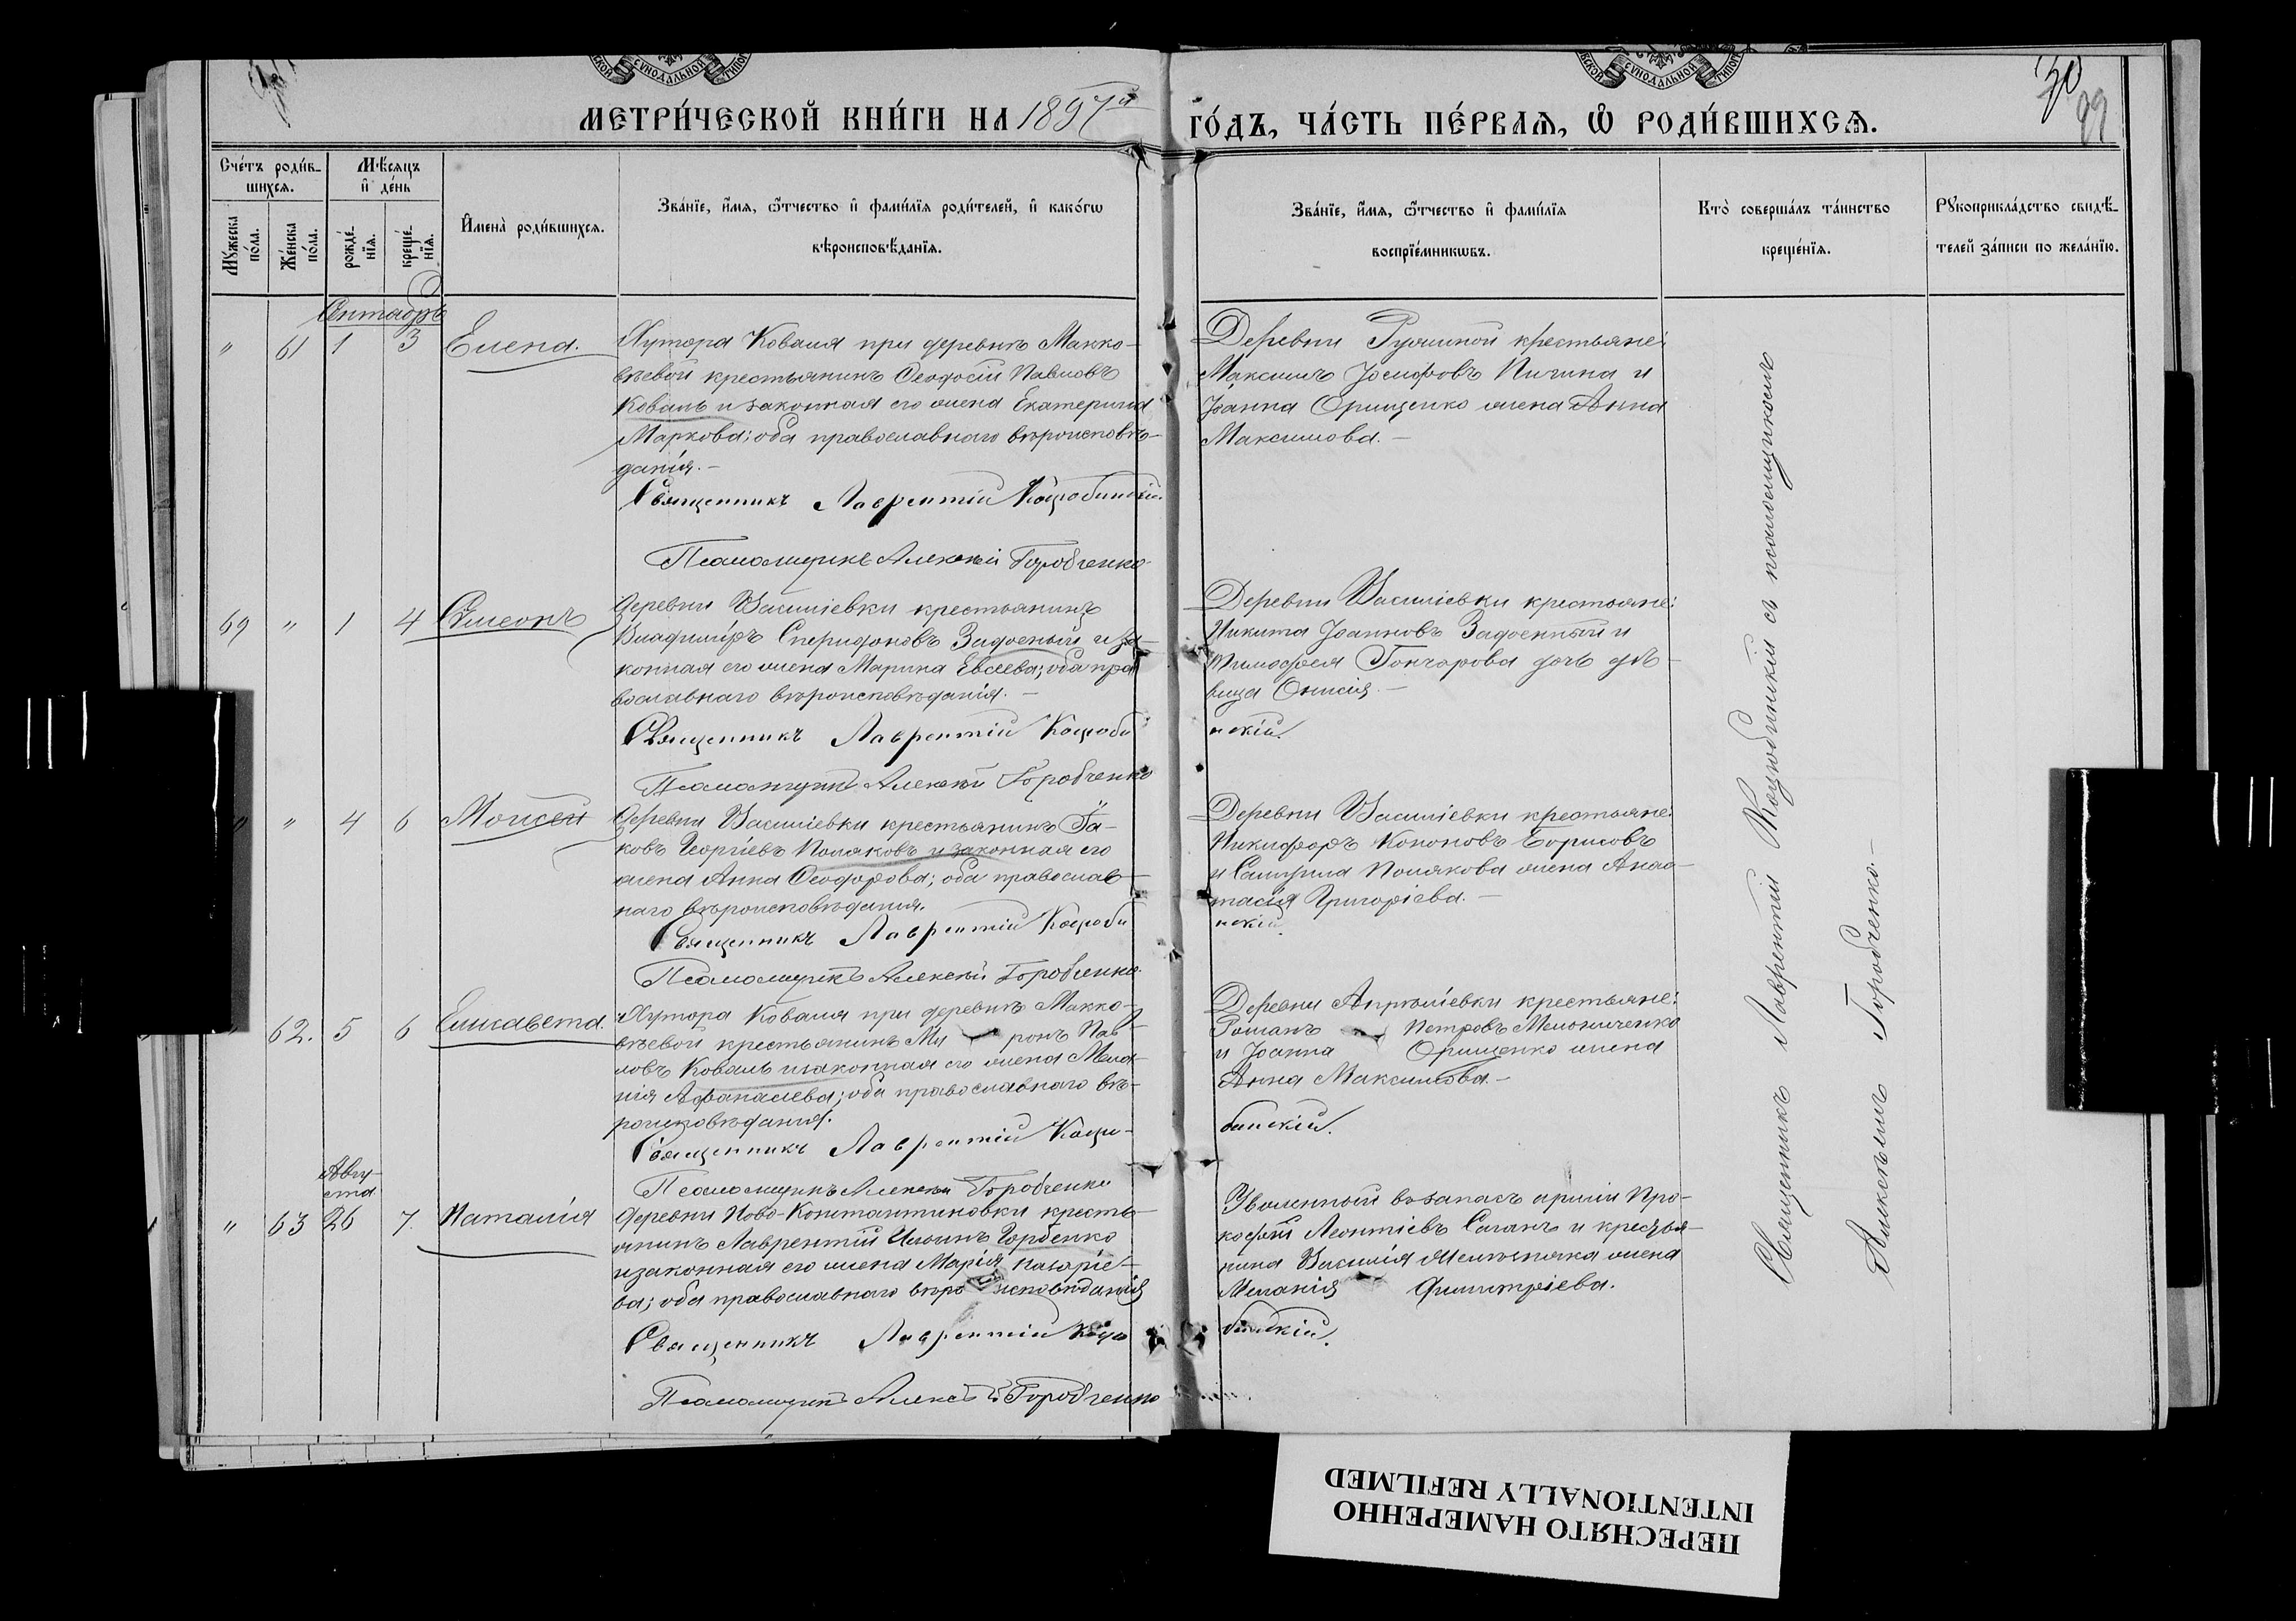 МЕТРИ́ЧЕСКОЙ КНИ́ГИ НА 1897й ГО́ДЪ, ЧА́СТЬ ПЕ́РВАѦ, Ѡ РОДИ́ВШИХСѦ.
30
99
Сче́тъ роди́в-
шихсѧ.
Мѣ́сѧцъ
и де́нь
Мꙋ́жеска
по́ла.
Же́нска
по́ла.
рожде́-
нїѧ.
креще́-
нїѧ.
Имена̀ роди́вшихсѧ.
Зва́нїе, и́мѧ, ѻ́тчество и фами́лїѧ роди́телей, и како́гѡ
вѣроисповѣ́данїѧ.
Зва́нїе, и́мѧ, ѻ́тчество и фами́лїѧ
воспрїе́мникѡвъ.
Кто̀ соверша́лъ та́инство
креще́нїѧ.
Рꙋкоприкла́дство свидѣ́-
телей за́писи по жела́нїю.
Сентябрь
" 61 1 3 Елена.
Хутора Коваля при деревнѣ Макко-
вѣевой крестьянинъ Ѳеодосій Павловъ
Коваль и законная его жена Екатерина
Маркова; оба православнаго вѣроисповѣ-
данія.-
Священникъ Лаврентій Коцюбинскій.
Псаломщикъ Алексѣй Горобченко
Деревни крестьяне:
Максимъ Іосифовъ Пичина и
Іоанна Орищенко жена Анна
Максимова.-
69 " 1 4 Сѵмеонъ
Деревни Василіевки крестьянинъ
Владиміръ Спиридоновъ Задоенный и за-
конная его жена Марина Евсеева; оба пра-
вославнаго вѣроисповѣданія.-
Священникъ Лаврентій Коцюби
нскій.
Псаломщикъ Алексѣй Горобченко
Деревни Василіевки крестьяне:
Никита Іоанновъ Задоенный и
Тимофея Гончарова дочь дѣ-
вица Онисія.-
" 4 6 Моѵсей
Деревни Василіевки крестьянинъ Іа-
ковъ Георгіевъ Поляковъ и законная его
жена Анна Ѳеодорова; оба православ-
наго вѣроисповѣданія.
Священникъ Лаврентій Коцюби
нскій.
Псаломщикъ Алексѣй Горобченко
Деревни Василіевки крестьяне:
Никифоръ Кононовъ Борисовъ
и Самуила Полякова жена Анас-
тасія Григоріева.-
62. 5 6 Елисавета.
Хутора Коваля при деревнѣ Макко-
вѣевой крестьянинъ Ми ронъ Пав-
ловъ Коваль и законная его жена Мела-
нія Афанасіева; оба православнаго вѣ-
роисповѣданія.
Священникъ Лаврентій Коцю-
бинскій.
Псаломщикъ Алексѣй Горобченко
Деревни крестьяне:
Романъ Петровъ Мельниченко
и Іоанна Орищенко жена
Анна Максимова.-
Авгу-
ста
" 63 26 7. Наталія
Деревни Ново-Константиновки кресть-
янинъ Лаврентій Ильинъ Горбенко
и законная его жена Марія Назаріе-
ва; оба православнаго вѣро исповѣданія
Священникъ Лаврентій Коцю
бинскій.
Псаломщикъ Алексѣй Горобченко
Уволенный въ запасъ арміи Про-
кофій Леонтіевъ Саганъ и крестья-
нина Василія жена
Меланія Димитріева.
Священникъ Лаврентій Коцюбинскій съ псаломщикомъ
Алексѣемъ Горобченко.-
ПЕРЕСНЯТО НАМЕРЕННО
INTENTIONALLY REFILMED